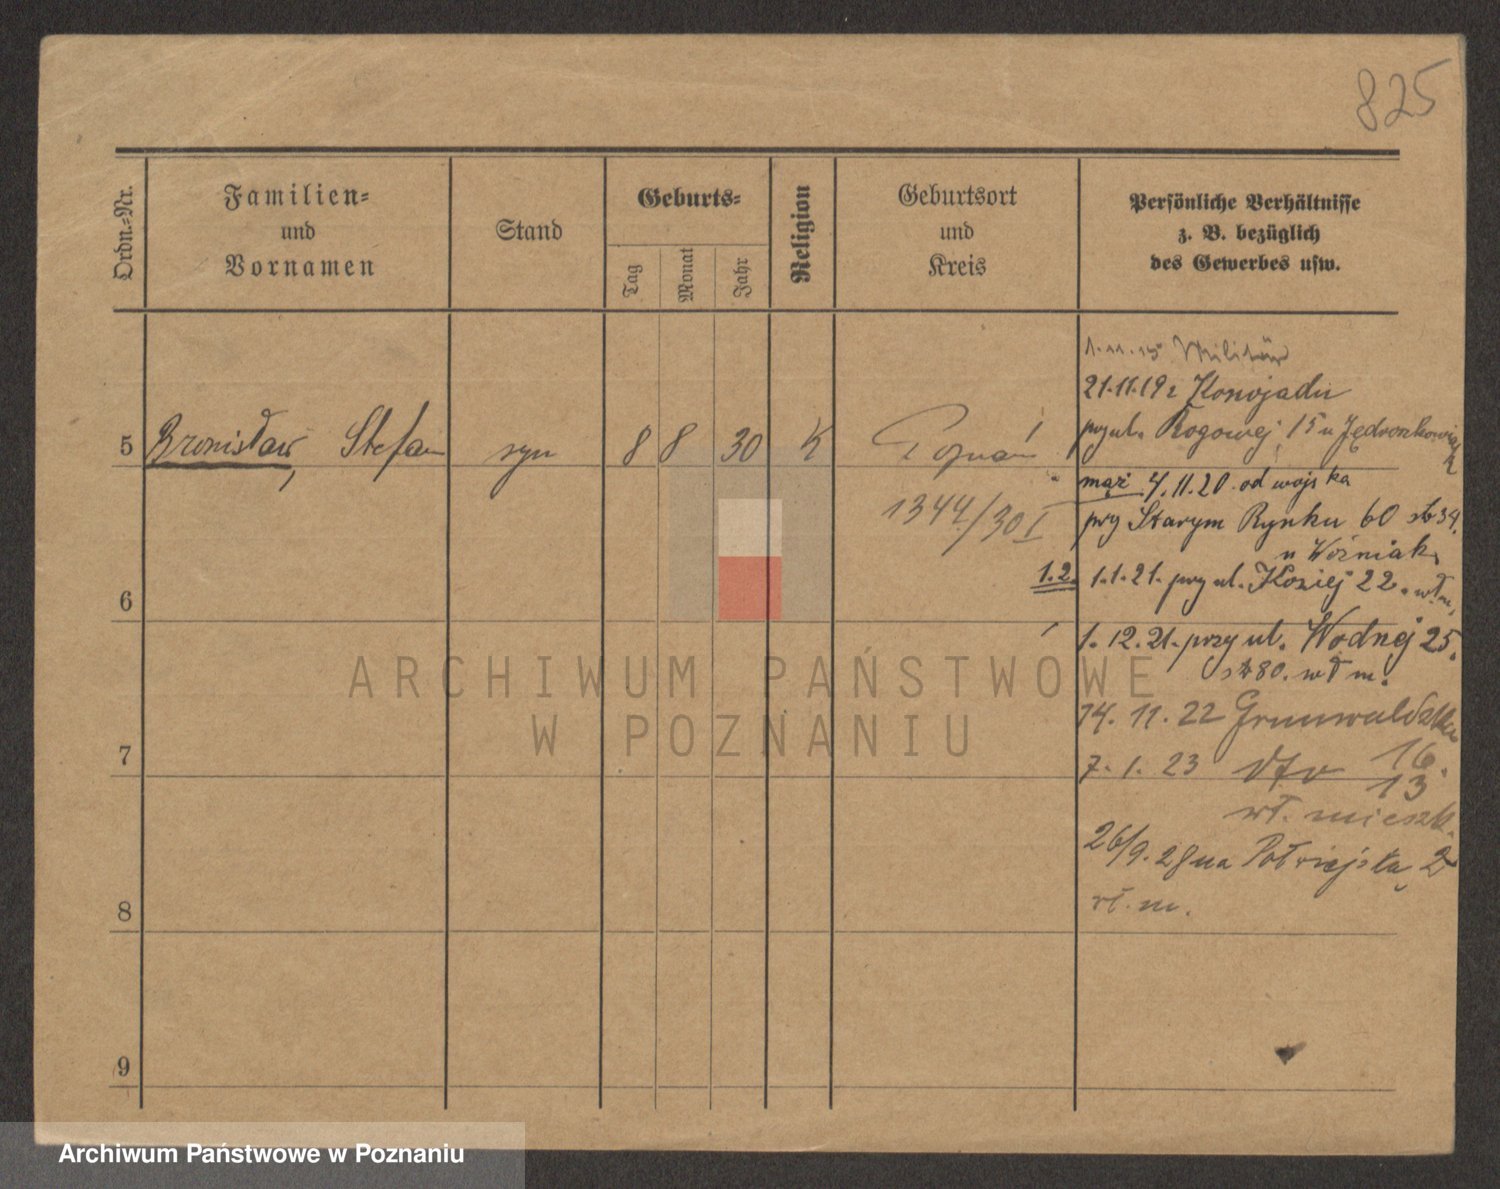 825
Ordn.-Nr.
Familien-
und
Vornamen
Stand
Geburts-
Tag
Monat
Jahr
Religion
Geburtsort
und
Kreis
Persönliche Verhältnisse
z. B. bezüglich
des Gewerbes usw.
1.11.15 Militär
21.11.19 z Konojadu
5 Bronisław, Stefan syn 8 8 30 K Poznań
przy ul. Rogowej 15 u
mąż 4.11.20 od wojska
1344/30 I
przy Starym Rynku 60 st 34.
u Woźniak
1.2. 1.1.21. przy ul. Koziej 22. wł m,
6
1.12.21. przy ul. Wodnej 25.
st 80. wł m.
14. 11. 22 Grunwaldzka
16.
7
7. 1. 23 dto 13
wł. mieszk.
26/9. 28 na Półwiejską 2
wł. m.
8
9
ARCHIWUM PAŃSTWOWE
W POZNANIU
Archiwum Państwowe w Poznaniu